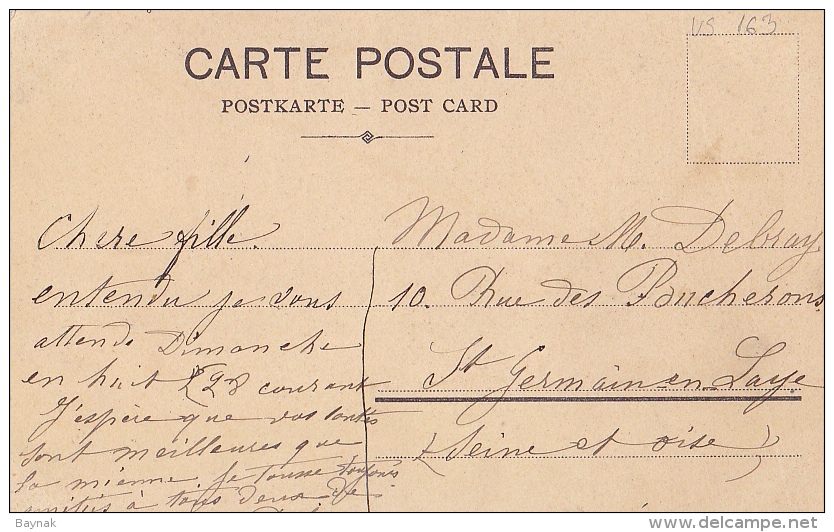 VS 163
CARTE POSTALE
POSTKARTE — POST CARD
Chere fille.
entendu je vous
attends Dimanche
en huit (28 courant
J'espère que vos santés
sont meilleures que
la mienne. Je tousse toujours
amitiés à tous deux de
Madame M. Debray
10. Rue des Bucherons
St Germain-en-Laye
(Seine et oise)
Baynak
www.delcampe.net